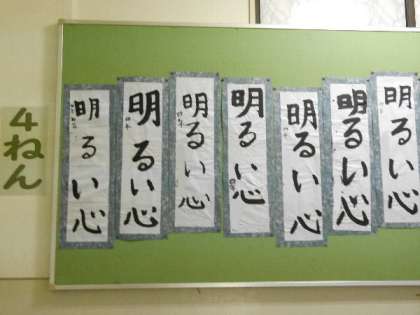 4ねん
明るい心
明るい心
明るい心
明るい心
明るい心
明るい心
明るい心